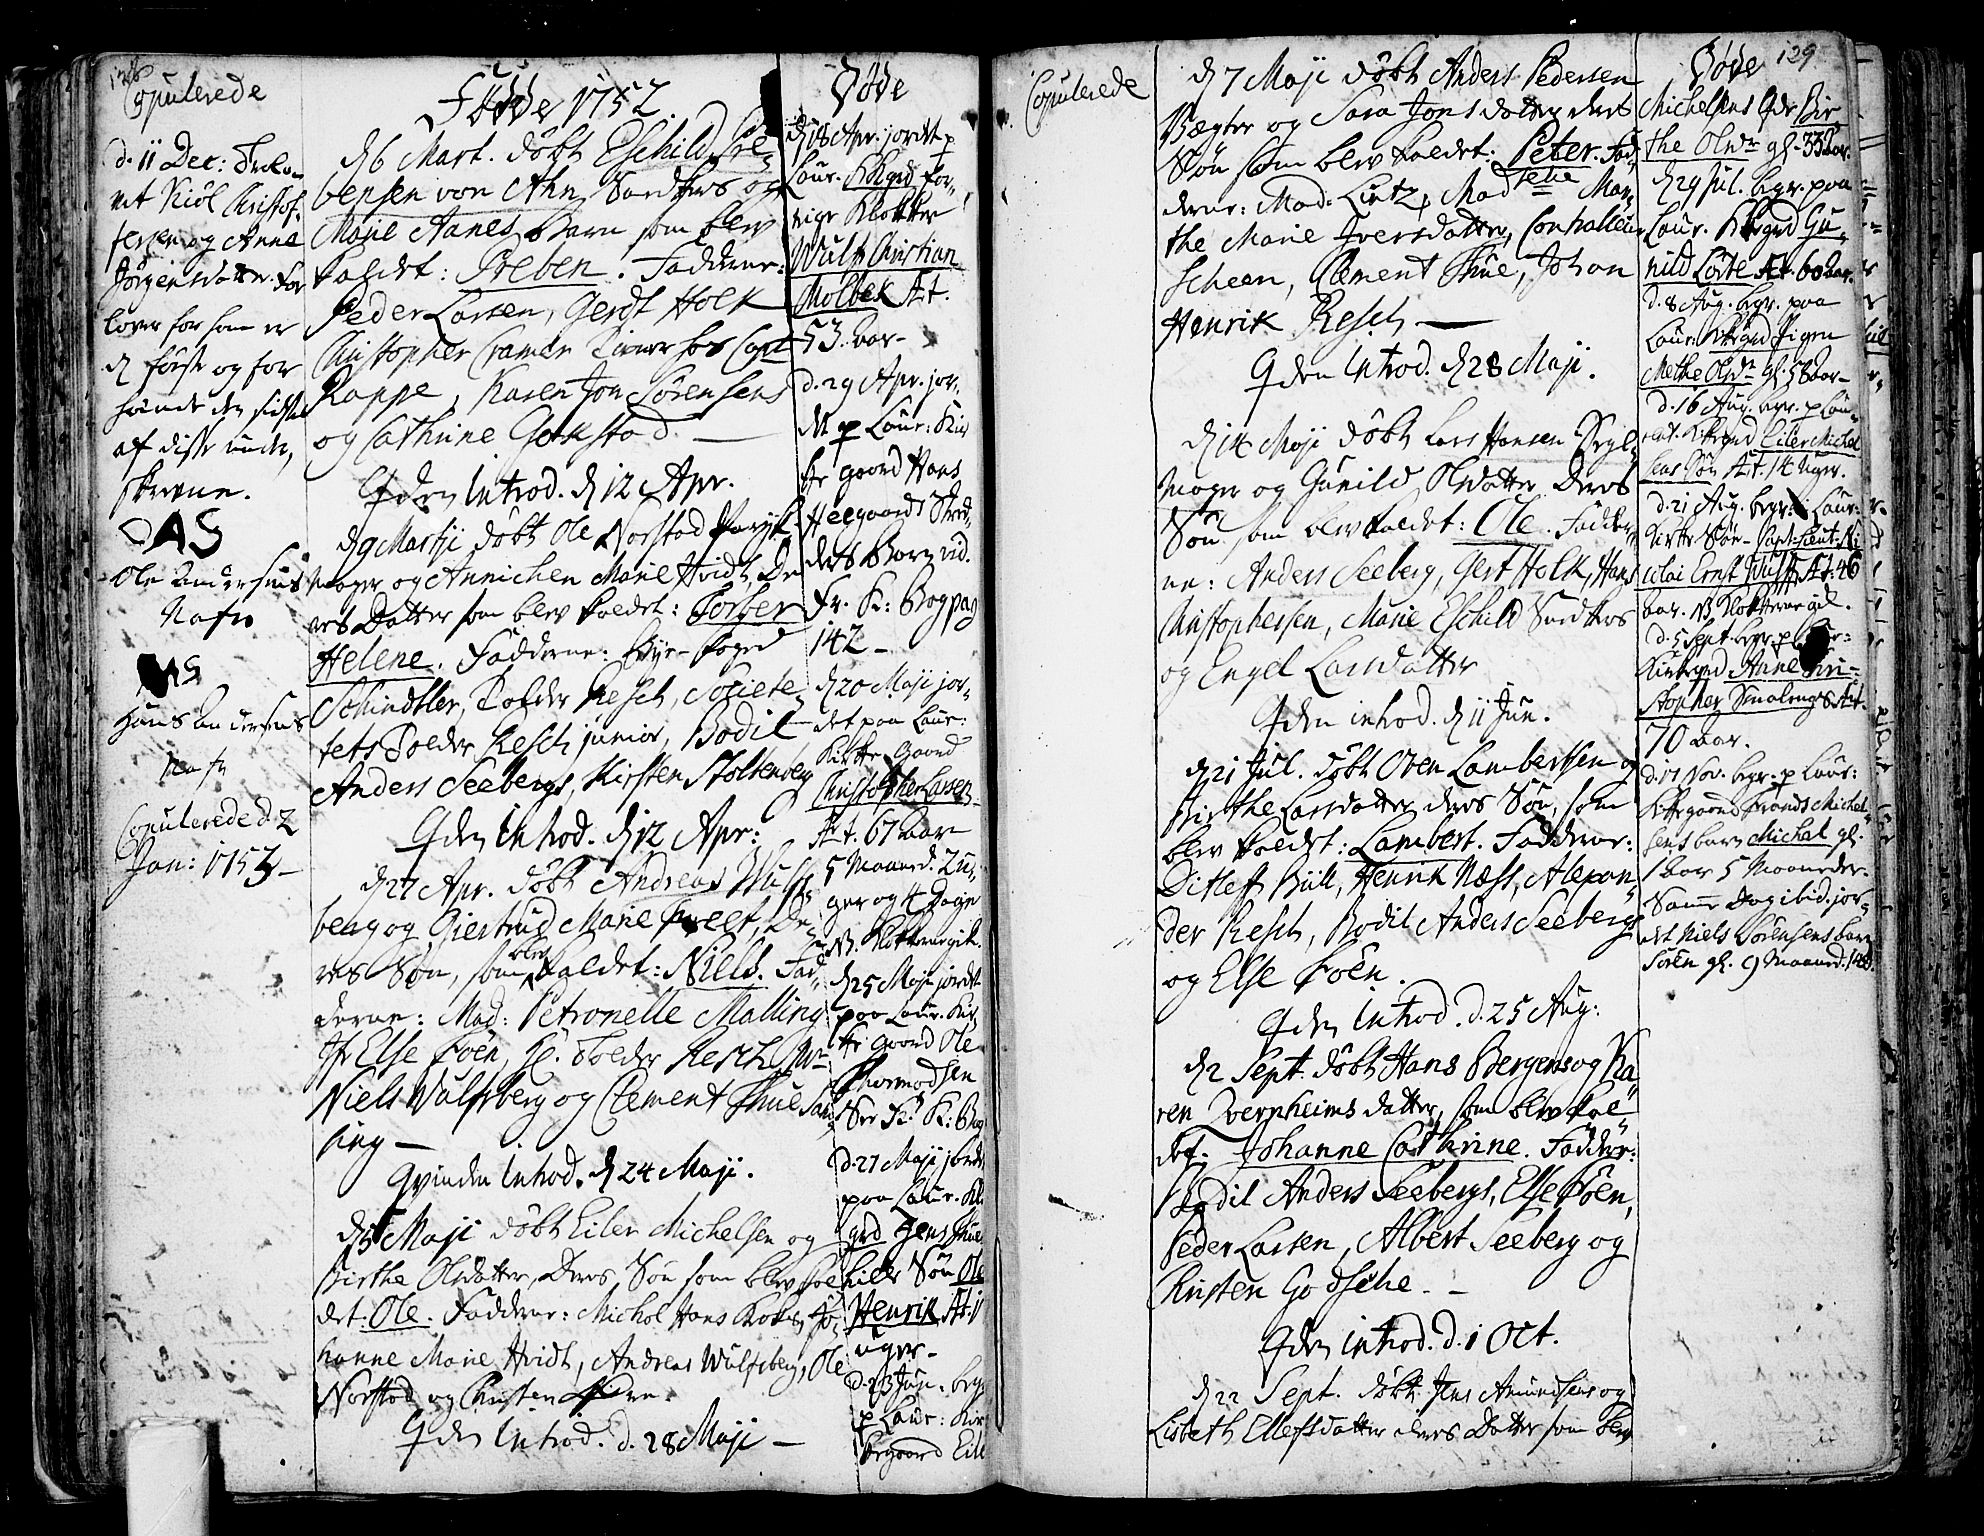 128
Copulerede
d. 11 Dec: Trolo-
vet Niöl Christof-
fersen og Anne
Jörgensdatter. For
lover for ham er
d förste og for
hende den sidste
af disse under,
skrevne.
OAS
Ole Andersens
Nafn
HAS
Hans Andersens
Nafn
Copulerede d. 2
Jan: 1753 -
Födde 1752.
d 6 Mart. döbt Eschild Pre-
bensen von Ahn Snedkers og
Marie Aanes Barn som blev
kaldet: Preben. Fadderne:
Peder Larsen, Gerdt Holk
Christopher Cramer Tiener hos Capt
Rappe, Karen Jon Sörensens
og Cathrine Gokstad. —
Qden Introd. d 12 Apr.
d 9 Martji döbt Ole Norstad Paryk-
mager og Annichen Marie Hvidt, De-
res Datter som blev kaldet: Torber
Helene. Fadderne: Bye-foged
Schindtler, Tolder Resch, Societe-
tets Tolder Resch junior, Bodil
Anders Seebergs, Kirsten Stoltenberg
Qden Introd. d 12 Apr:
d 27 Apr. döbt Andreas Wulfs-
berg og Giertrud Marie Freet, De-
res Sön, som blev kaldet: Niels. Fad-
derne: Mad: Petronelle Malling
Jfr Else Foën, Hr. Tolder Resch, Mr
Niels Wulfsberg og Clement Thue San-
ting —
Qvinden Introd. d 24 Maji.
d 5 Maji döbt Eiler Michelsen og
Birthe Olsdatter, Deres Sön som blev kal
det: Ole. Fadderne: Michel Hans Kokes, Jo-
hanne Marie Hvidt, Andreas Wulfsberg, Ole
Norstad og Christen
Qden Introd. d. 28 Maji —
Döde
d 18 Apr. jordet p
Laur. Kkgrd for-
rige Klokker
Wulf Christian
Molbek Æt.
53. Aar -
d. 29 Apr. jor-
det p Laur: Kir
ke gaard Hans
Heegaards Skred-
ders Barn vid.
Fr. K: Bog pag
142 -
d 20 Maji jor-
det paa Laur:
Kirke-Gaard
Christopher Larsen
Æt. 67 aar
5 Maaned. 2 u-
ger og 4 Dage
NB. Klokkerne gik.
d 25 Maji jordet
paa Laur. Kir-
ke Gaard Ole
Thormodsen
See Fr. K: Bog
d. 27 Maji jordet
paa Laur. Kk
grd Jens Thue
Sön Ole
Henrik Æt. 11
uger -
d. 23 Jun. begr
p Laur: Kir
kegaard Eile
Copulerede
d 7 Maji döbt Anders Pedersen
Vægter og Sara Jons datter deres
Sön som blev kaldet: Peter. Fad-
derne: Mad: Lintz, Mad Mar-
the Marie Iversdatter, Controlleur
Scheen, Clement Thue, Johan
Henrik Resch —
Qden Introd. d 28 Maji.
d 14 Maji döbt Lars Hansen Segl-
mager og Gunild Olsdatter Deres
Sön som blev kaldet: Ole. Fadder-
ne: Anders Seeberg, Gert Holk, Hans
Christophersen, Marie Eschild Snedkers
og Engel Larsdatter
Qden introd. d 11 Jun.
d 21 Jul. döbt Oven Lambertsen og
Birthe Larsdatter deres Sön, som
blev kaldet: Lambert. Fadderne:
Ditleff Bull, Henrik Næss, Alexan-
der Resch, Bodil Anders Seebergs
og Else Foën.
Qden Introd. d. 25 Aug:
d 2 Sept. döbt Hans Bergens og Ka-
ren Zvernheims datter, som blev kal-
det. Johanne Cathrine. Fadder:
Bodil Anders Seebergs, Else Foën,
Peder Larsen, Albert Seeberg og
Kirsten Godsche. -
Qden introd. d. 1 Oct.
d 22 Sept. döbt Jens Amundsens og
Lisbeth Ellefsdatter deres Datter som blev
Döde 129
Michelsens Qde Bir-
the Olsdr gl. 33 Aar.
d 29 Jul. begr. paa
Laur. Kkegrd Gu-
nild Löite Æt. 60 Aar.
d. 8 Aug. begr. paa
Laur. Kkegrd Pigen
Methe Olsdr Gl. 58 aar -
d. 16 Aug. begr. p Lau-
rent. Kkegrd Eiler Michel
sens Sön Æt. 14 Uger.
d. 21 Aug. begr: i Laur:
Kirke Sön- Capt-Lieut. Ni
colai Ernst Wulff Æt: 46
Aar. NB Klokkerne gik.
d. 5 Sept. begr. p Laur:
Kirkegrd Anne Chri-
stopher Smalungs Æt.
70 aar.
d. 17 Nov. begr. p Laur:
Kirkegaard Frands Michel-
sens barn Michel gl.
1 aar 5 Maaneder.
Samme Dag ibid. jor-
det Niels Sörensens barn
Sören gl. 9 Maaned.